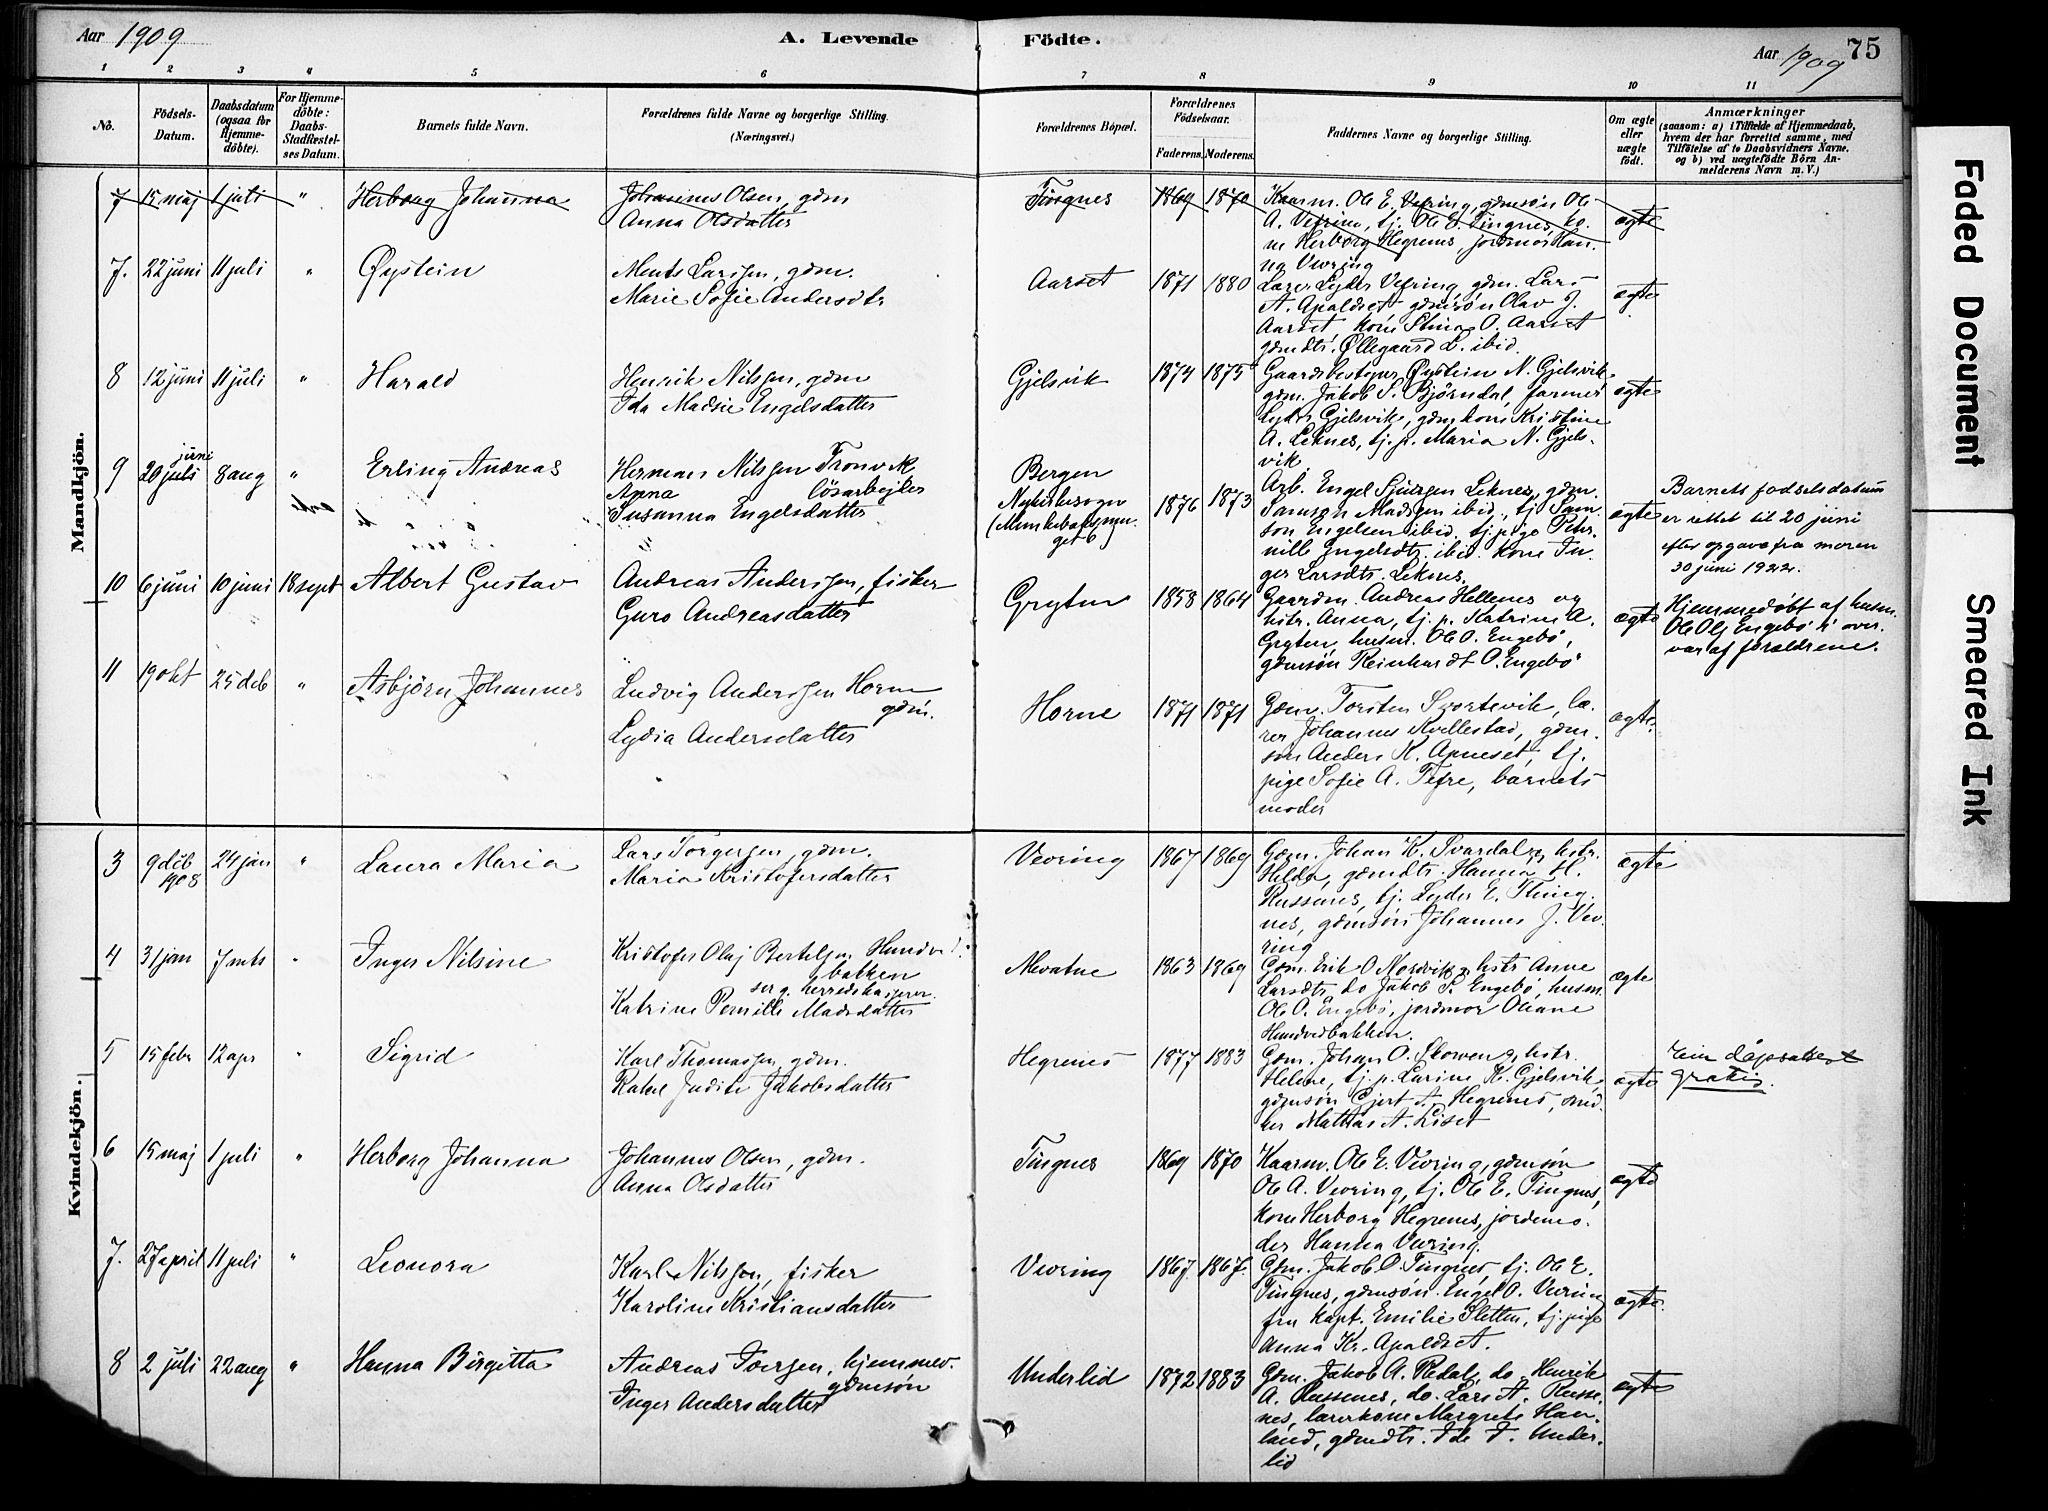 Aar 1909
A. Levende Födte.
Aar 1909
75
1 2 3 4 5 6 7 8 9 10 11
No.
Födsels-Datum.
Daabsdatum (ogsaa for Hjemmedöbte).
For Hjemmedöbte: Daabs-Stadfæstelses Datum.
Barnets fulde Navn.
Forældrenes fulde Navne og borgerlige Stilling.
(Næringsvei.)
Forældrenes Bopæl.
Forældrenes Födselsaar.
Faderens. Moderens.
Faddernes Navne og borgerlige Stilling.
Om ægte eller uægte födt.
Anmærkninger
(saasom: a) i Tilfælde af Hjemmedaab,
hvem der har forrettet samme, med
Tilföielse af to Daabsvidners Navne.
og b) ved uægtefödte Börn Anmelderens Navn m. V.)
Mandkjön.
7 15 maj 1 juli " Herborg Johanna
Johannes Olsen, gdm
Anna Olsdatter
Tingnes 1869 1870
Kaarm. Ole E. Vevring, gdmsøn Ole
A. Vevring, tj. Ole E. Tingnes, ko-
ne Herborg Hegrenes, jordmor Han-
na Vevring
ægte
7. 22 juni 11 juli " Øystein
Ments Larssen, gdm.
Marie Sofie Andersdtr
Aarset 1871 1880
Lars Lyder Vefring, gdm. Lars
A. Apaldset gdmsøn Olav J.
Aarset, kone Stina O. Aarset
gdmdtr. Øllegaard L. ibid.
ægte
8 12 juni 11 juli " Harald
Henrik Nilssen, gdm
Ida Madsie Engelsdatter
Gjelsvik 1874 1875
Gaardbestyrer Øystein N. Gjelsvik
gdm. Jakob S. Bjørndal, farmer
Lyder Gjelsvik, gdmkone Kristine
A. Leknes, tj. p. Maria N. Gjels-
vik
ægte
9 20 juli juni 8 aug " Erling Andreas
Herman Nilssen Tronvik
Anna løsarbejder
Susanna Engelsdatter
Bergen
Nykirkesogn
1876 1873
Arb. Engel Sjursen Leknes, gdm.
Samson Madssen ibid., tj. Sam-
son Engelsen ibid. tj. pige Per-
nille Engelsdtr. ibid. kone In-
ger Larsdtr. Leknes.
ægte
Barnets fødselsdatum
er rettet til 20 juni
efter opgave fra moren
30 juni 1922.
10 6 juni 10 juni 18 sept Albert Gustav
Andreas Anderssen, fisker
Guro Andreasdatter
Gryten 1858 1864
Gaardm. Andreas Hellenes og
hstr. Anna, tj. p. Katrine A.
Gryten, husm. Ole O. Engebø,
gdmsøn Reinhardt O. Engebø
ægte
Hjemmedøbt af husm.
Ole Olsj Engebø i over-
vær af forældrene.
11 19 okt 25 deb " Asbjørn Johannes
Ludvig Anderssen Horne
gdm.
Lydia Andersdatter
Horne 1871 1871
Gdm. Torsten Svortevik, læ-
rer Johannes Kvellestad, gdm.
søn Anders K. Apneset, tj.
pige Sofie A. Tefre, barnets
moder
ægte.
Kvindekjön.
3 9 deb 1908 24 jan " Laura Maria
Lars Torgersen, gdm.
Maria Kristofersdatter
Vevring 1867 1869
Gdm. Johan K. Svardal og hstr.
Helda, gdmdtr. Hanna H.
Russenes, tj. Lyder E. Thing-
nes, gdmsøn Johannes J. Vev-
ring
ægte
4 31 jan 7 mts " Inger Nilsine
Kristofer Olaj Bertelsen Hundvid-
bakken
serg. herredskasserer.
Katrine Pernille Madsdatter
1863 1869
Gdm. Erik O Nordvik og hstr Anne
Larsdtr. do Jakob P. Engebø, husm.
Ole O. Engebø, jordmor Oliane
Hundvidbakken.
ægte
5 15 febr 12 apr " Sigrid
Karl Thomassen, gdm.
Rakel Judite Jakobsdatter
Hegrenes 1877 1883
Gdm. Johan O. Skoven og hstr.
Helene, tj. p. Larine K. Gjelsvik,
gdmsøn Gjert A. Hegrenes, sned-
ker Mathias A. Liset
ægte
Ein dåpsattest
gratis.
6 15 maj 1 juli " Herborg Johanna
Johannes Olsen, gdm.
Anna Olsdatter
Tingnes 1869 1870
Kaarm. Ole E. Vevring, gdmsøn
Ole A. Vevring, tj. Ole E. Tingnes,
kone Herborg Hegrenes, jordemo-
der Hanna Vevring.
ægte
7. 27 april 11 juli " Leonora
Karl Nilssen, fisker
Karoline Kristiansdatter
Vevring 1867 1867.
Gdm. Jakob O. Tingnes, tj. Ole E.
Tingnes, gdmsøn Engel O. Vevring
fru kapt. Emilie Sletten, tj. pige
Anna Kr. Apaldset.
ægte.
8 2 juli 22 aug " Hanna Birgitta
Andreas Toersen, hjemmev.
gdmsøn
Inger Andersdatter
Underlid 1872 1883
Gdm. Jakob A. Redal, do Henrik
A. Russenes, do. Lars A. Russe-
nes, lærerkone Margrete Hau-
land, gdmdtr. Ida T. Under-
lid
ægte
Faded Document
Smeared Ink